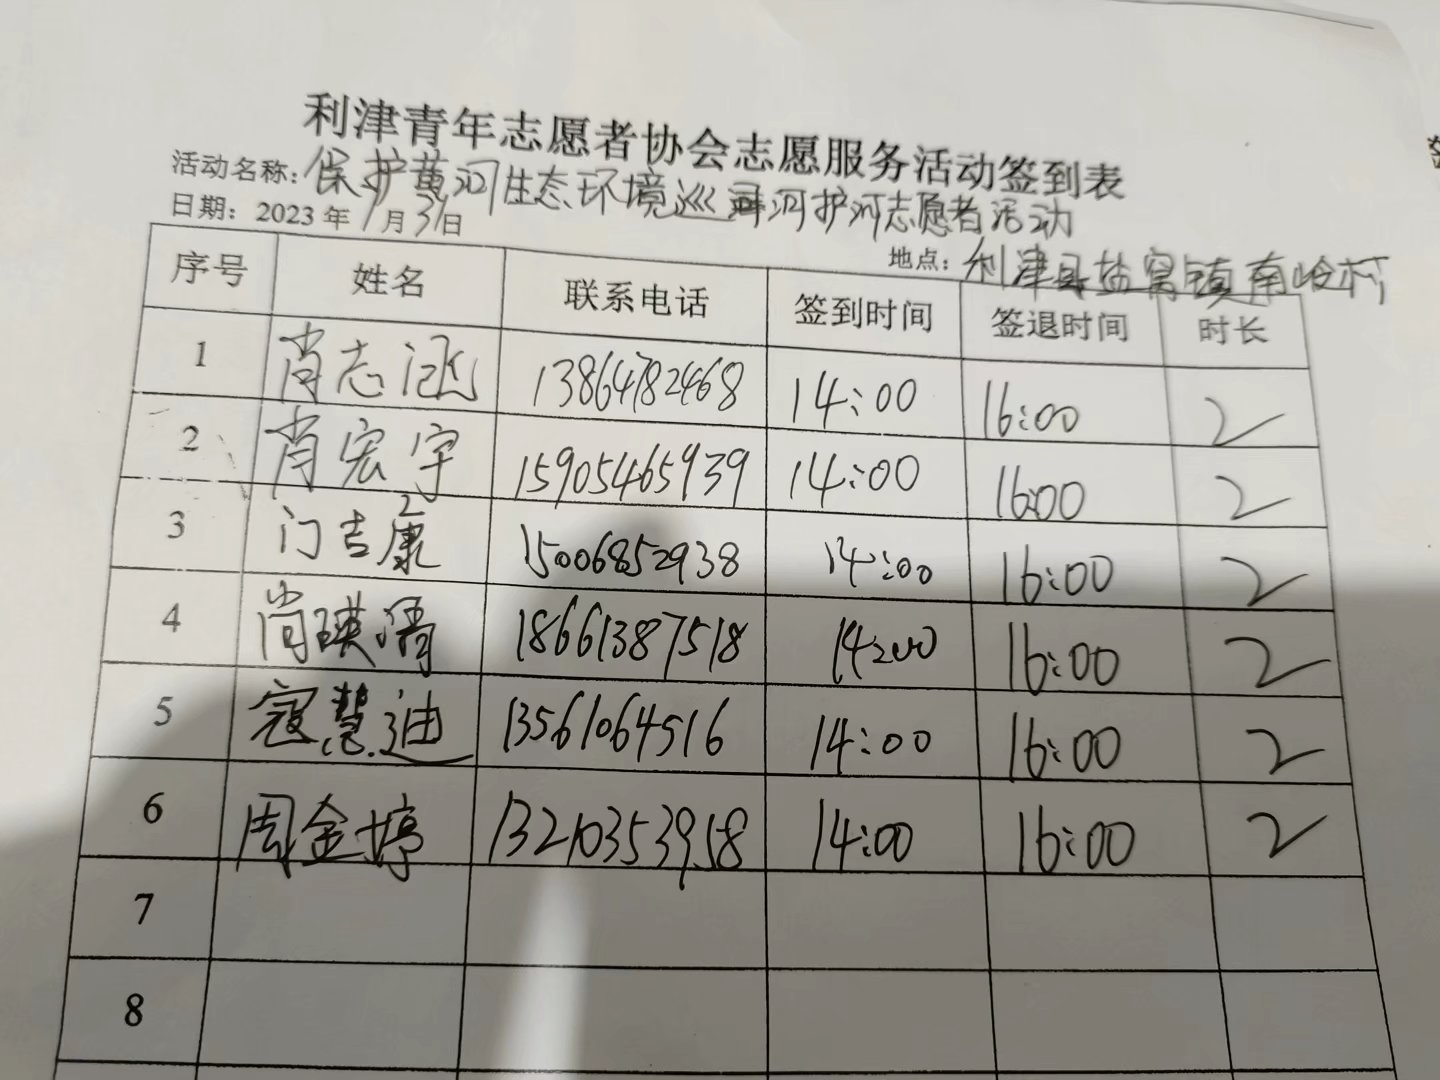 利津青年志愿者协会志愿服务活动签到表
活动名称：保护黄河生态环境巡河护河志愿者活动
日期：2023年1月31日
地点：利津县盐窝镇南岭村
序号 姓名 联系电话 签到时间 签退时间 时长
1 肖志涵 13864782468 14:00 16:00 2
2 肖宏宇 15905465939 14:00 16:00 2
3 门吉康 15006852938 14:00 16:00 2
4 尚瑛 18661387518 14:00 16:00 2
5 寇慧迪 13561064516 14:00 16:00 2
6 周金婷 13210353958 14:00 16:00 2
7
8